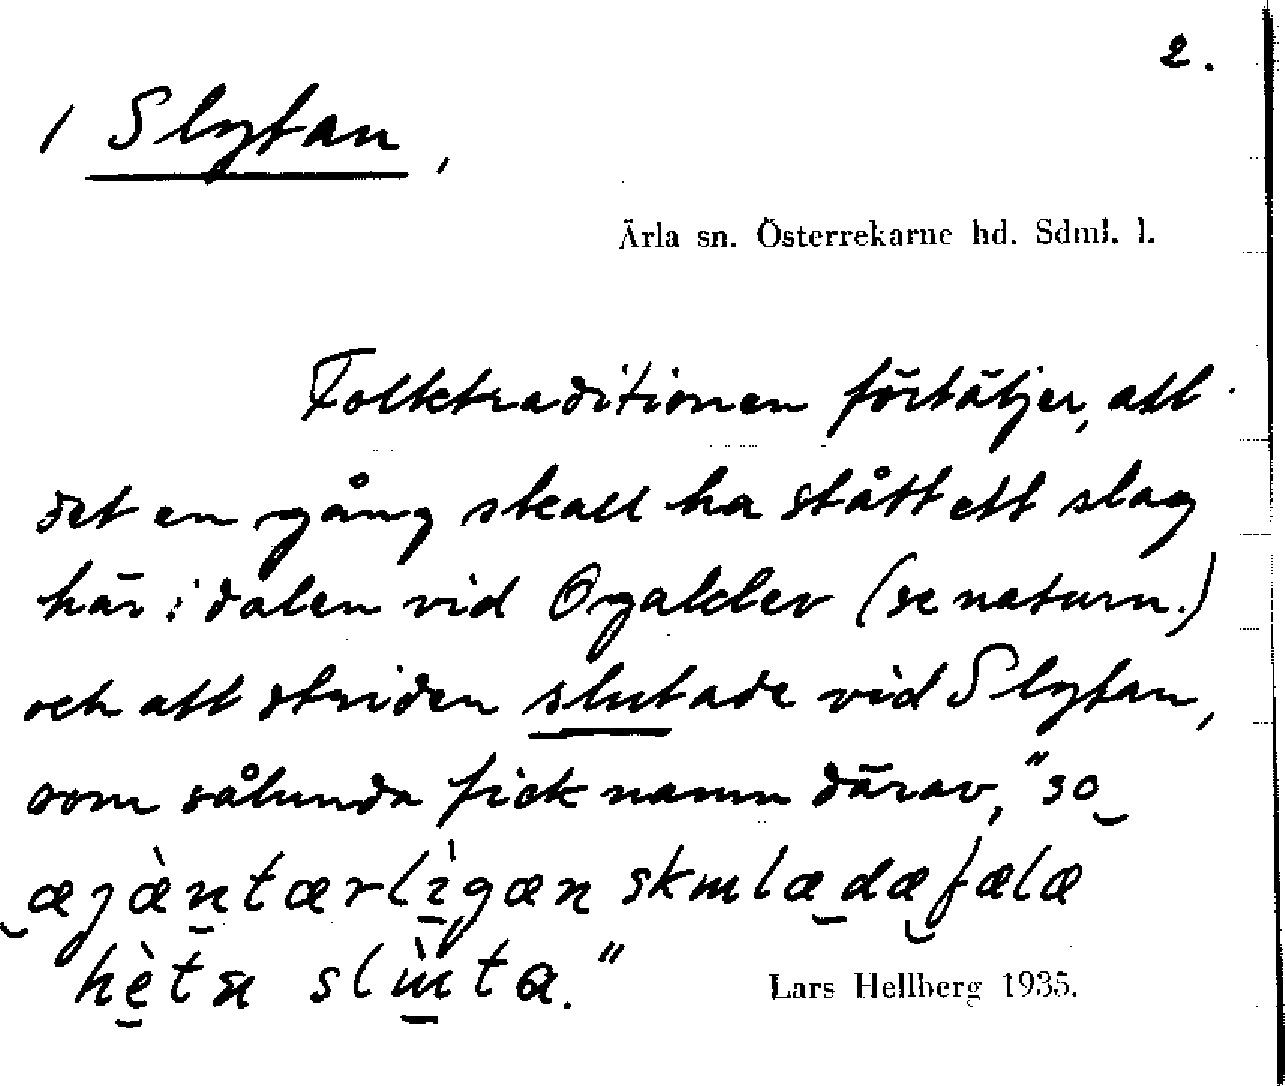 2.
/ Slytan,
Ärla sn. Österrekarne hd. Sdml. l.
Folktraditionen förtäljer, att
det en gång skall ha stått ett slag
här i dalen vid Ogaklev (se naturn.)
och att striden slutade vid Slytan,
som sålunda fick namn därav, "so
hèta slɯ̀ta."
Lars Hellberg 1935.